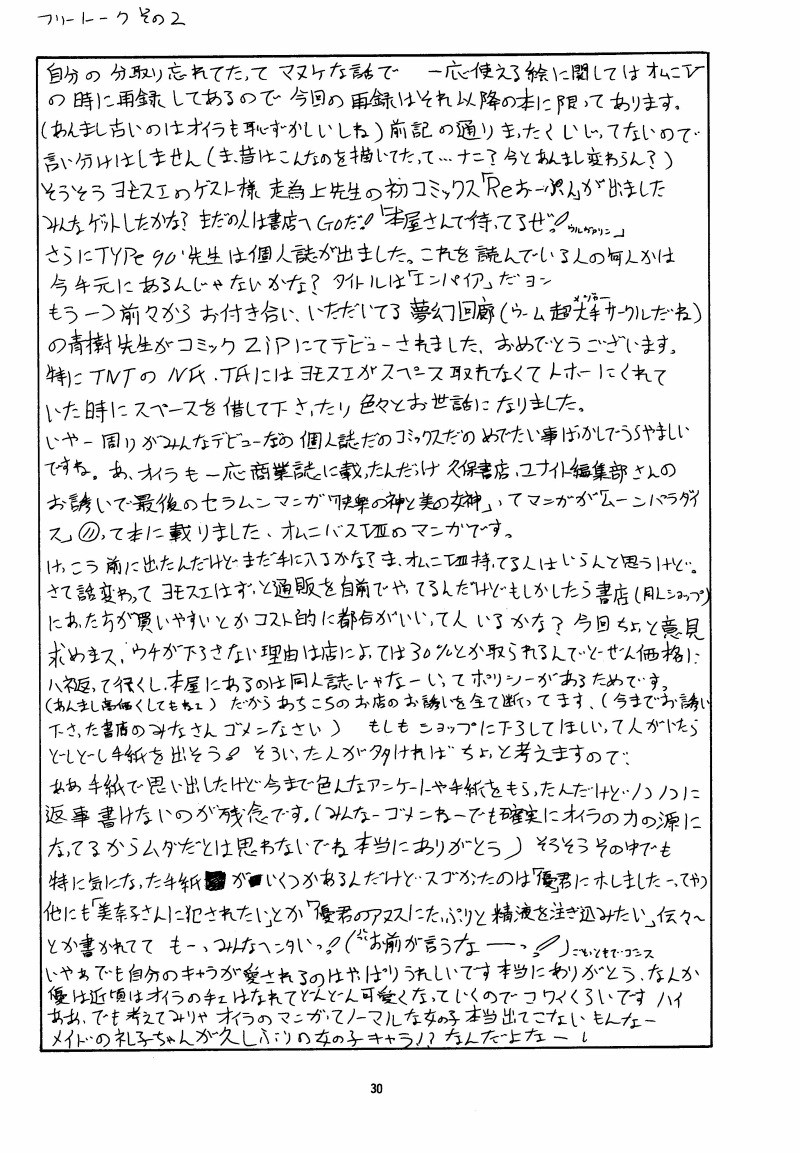 フリートーク その2
自分の分取り忘れてたってマヌケな話で 一応使える絵に関してはオムニV
の時に再録してあるので今回の再録はそれ以降の本に限ってあります。
(あんまし古いのはオイラも恥ずかしいしね)前記の通りまったくいじってないので
言い分けはしません(ま、昔はこんなのを描いてたって…ナニ?今とあんまし変わらん?)
そうそうヨモスエのゲスト様 走為上先生の初コミックス「Reおーぷん」が出ました
みんなゲットしたかな?まだの人は書店へGoだ!「本屋さんで待ってるぜ!ウルヴァリン」
さらにTYPe90'先生は個人誌が出ました。これを読んでいる人の何人かは
今手元にあるんじゃないかな?タイトルは「エンパイア」だヨン
もう一つ前々からお付き合いいただいてる夢幻回廊(ウーム超大手サークルだね)
の青樹先生がコミックZiPにてデビューされました、おめでとうございます。
特にTNTのNF.TFにはヨモスエがスペース取れなくてトホーにくれて
いた時にスペースを借して下さったり色々とお世話になりました。
いやー周りがみんなデビューだの個人誌だのコミックスだのめでたい事ばかしでうらやましい
ですね。あ、オイラも一応商業誌に載ったんだっけ 久保書店、ユナイト編集部さんの
お誘いで最後のセラムンマンガ「快楽の神と美の女神」ってマンガが「ムーンパラダイ
ス」⑪って本に載りました、オムニバスVIIIのマンガです。
けっこう前に出たんだけどまだ手に入るかな?ま、オムニVIII持ってる人はいらんと思うけど。
さて話変わってヨモスエはずっと通販を自前でやってるんだけどもしかしたら書店(同人ショップ)
にあった方が買いやすいとかコスト的に都合がいいって人いるかな?今回ちょっと意見
求めまス、ウチが下ろさない理由は店によっては30%とか取られるんでどーせん価格に
ハネ返って行くし、本屋にあるのは同人誌じゃなーいってポリシーがあるためです。
(あんまし高価くしてもねェ)だからあちこちのお店のお誘いを全て断ってます、(今までお誘い
下さった書店のみなさんゴメンなさい) もしもショップに下ろしてほしいって人がいたら
どしどし手紙を出そう!そういった人が多ければちょっと考えますので、
ああ手紙で思い出したけど今まで色んなアンケートや手紙をもらったんだけどいついつに
返事書けないのが残念です。(みんなーゴメンねーでも確実にオイラの力の源に
なってるからムダだとは思わないでね本当にありがとう)そうそうその中でも
特に気になった手紙 がいくつかあるんだけどスゴかったのは「優君にホレしました〜」ってやつ
他にも「美奈子さんに犯されたい」とか「優君のアヌスにたっぷりと精液を注ぎ込みたい」伝々〜
とか書かれてて もーっみんなヘンタいっ!(お前が言うなーーっ!)
いやぁでも自分のキャラが愛されるのはやっぱりうれしいです本当にありがとう、なんか
優は近頃はオイラのチェはなれてどんどん可愛くなっていくのでコワイくらいです ハイ
ああ、でも考えてみりゃオイラのマンガってノーマルな女の子本当出てこないもんなー
メイドの礼子ちゃんが久しぶりの女の子キャラ!?なんだよなー
30